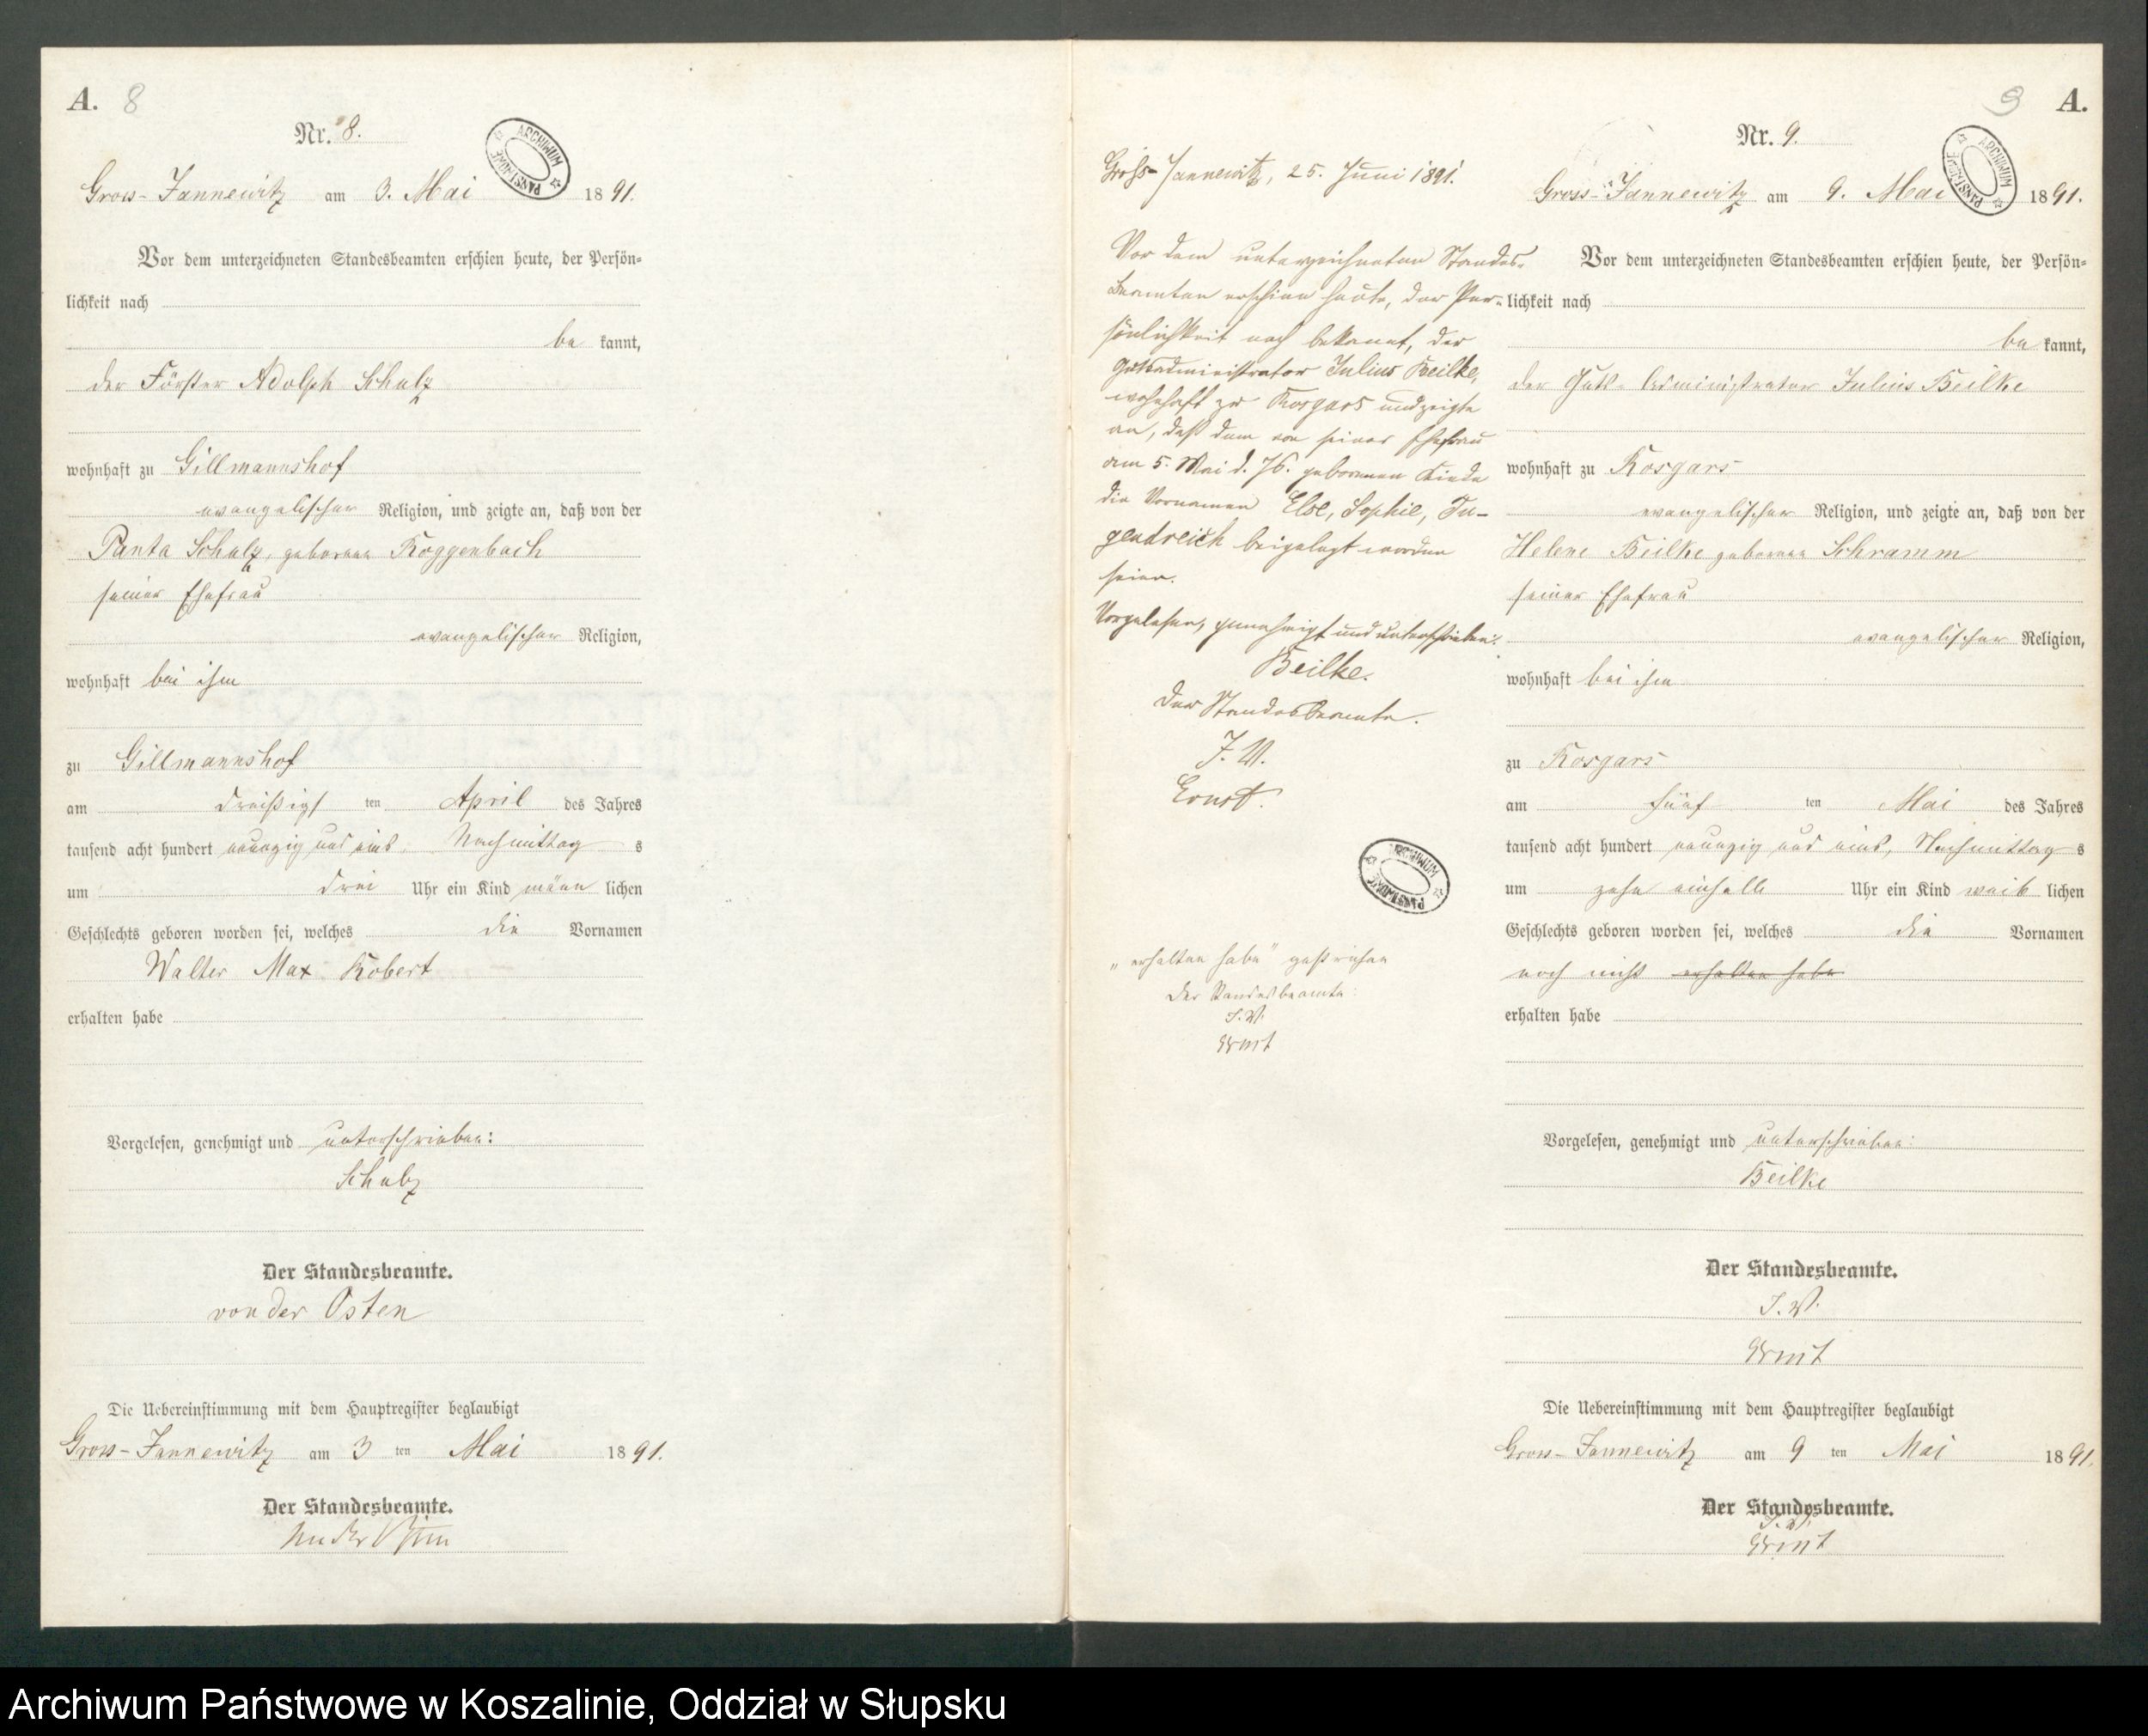 A. 8
Nr. 8.
Gross-Jannewitz am 3. Mai 1891.
Vor dem unterzeichneten Standesbeamten erschien heute, der Persön-
lichkeit nach
be kannt,
der Förster Adolph Schulz
wohnhaft zu Gillmannshof
evangelischer Religion, und zeigte an, daß von der
Schulz, geborene Roggenbach
seiner Ehefrau
evangelischer Religion,
wohnhaft bei ihm
zu Gillmannshof
am dreißigs ten April des Jahres
tausend acht hundert neunzig und eins, Nachmittag s
um drei Uhr ein Kind männ lichen
Geschlechts geboren worden sei, welches die Vornamen
Walter Max Robert
erhalten habe
Vorgelesen, genehmigt und unterschrieben:
Schulz
Der Standesbeamte.
von der Osten
Die Uebereinstimmung mit dem Hauptregister beglaubigt
Gross-Jannewitz am 3 ten Mai 1891.
Der Standesbeamte.
von der Osten
Groß-Jannewitz, 25. Juni 1891.
Vor dem unterzeichneten Standes-
beamten erschien heute, der Per-
sönlichkeit nach bekannt, der
Gutsadministrator Julius Beilke,
wohnhaft zu Rosgars und zeigte
an, daß dem von seiner Ehefrau
am 5. Mai d. Js. geborenen Kinde
die Vornamen Else, Sophie, Tu-
gendreich beigelegt worden
seien.
Vorgelesen, genehmigt und unterschrieben:
Beilke.
Der Standesbeamte.
J. V.
Ernst.
"erhalten habe" gestrichen
Der Standesbeamte:
J. V.
Ernst
9 A.
Nr. 9.
Gross-Jannewitz am 9. Mai 1891.
Vor dem unterzeichneten Standesbeamten erschien heute, der Persön-
lichkeit nach
be kannt,
der Guts-Administrator Julius Beilke
wohnhaft zu Rosgars
evangelischer Religion, und zeigte an, daß von der
Helene Beilke geborene Schramm
seiner Ehefrau
evangelischer Religion,
wohnhaft bei ihm
zu Rosgars
am fünf ten Mai des Jahres
tausend acht hundert neunzig und eins, Nachmittag s
um zehn einhalb Uhr ein Kind weib lichen
Geschlechts geboren worden sei, welches die Vornamen
noch nicht erhalten habe
erhalten habe
Vorgelesen, genehmigt und unterschrieben:
Beilke
Der Standesbeamte.
J. V.
Ernst
Die Uebereinstimmung mit dem Hauptregister beglaubigt
Gross-Jannewitz am 9 ten Mai 1891.
Der Standesbeamte.
J. V.
Ernst
ARCHIWUM PAŃSTWOWE
ARCHIWUM PAŃSTWOWE
ARCHIWUM PAŃSTWOWE
Archiwum Państwowe w Koszalinie, Oddział w Słupsku